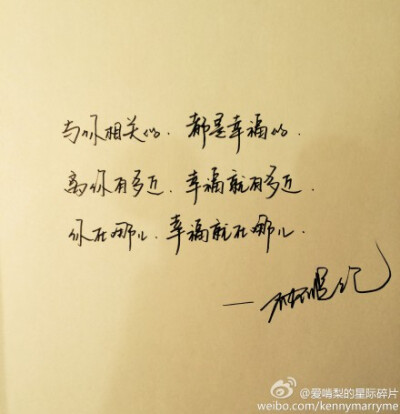 与你相关的.都是幸福的.
离你有多近.幸福就有多近.
你在哪儿.幸福就在哪儿.
@爱啃梨的星际碎片
weibo.com/kennymarryme